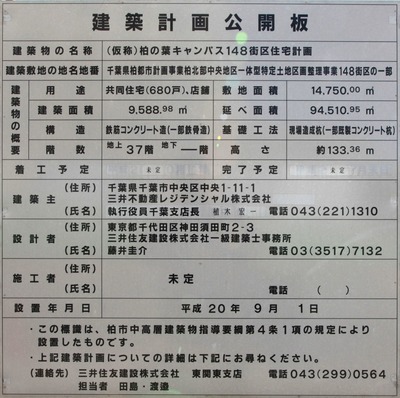 建築計画公開板
建築物の名称 (仮称)柏の葉キャンパス148街区住宅計画
建築敷地の地名地番 千葉県柏都市計画事業柏北部中央地区一体型特定土地区画整理事業148街区の一部
建築物の概要
用途 共同住宅(680戸)、店舗 敷地面積 14,750.00㎡
建築面積 9,588.98㎡ 延べ面積 94,510.95㎡
構造 鉄筋コンクリート造(一部鉄骨造) 基礎工法 現場造成杭(一部既製コンクリート杭)
階数 地上37階 地下ー階 高さ 約133.36m
着工予定 未定 完了予定 未定
建築主 (住所) 千葉県千葉市中央区中央1-11-1
三井不動産レジデンシャル株式会社
(氏名) 執行役員千葉支店長 植木宏一 電話043(221)1310
設計者 (住所) 東京都千代田区神田須田町2-3
三井住友建設株式会社一級建築士事務所
(氏名) 藤井圭介 電話03(3517)7132
施工者 (住所) 未定
(氏名) 電話 ( )
設置年月日 平成20年9月1日
・この標識は、柏市中高層建築物指導要綱第4条1項の規定により
設置したものです。
・上記建築計画についての詳細は下記にお尋ねください。
(連絡先) 三井住友建設株式会社 東関東支店 電話043(299)0564
担当者 田島・渡邉